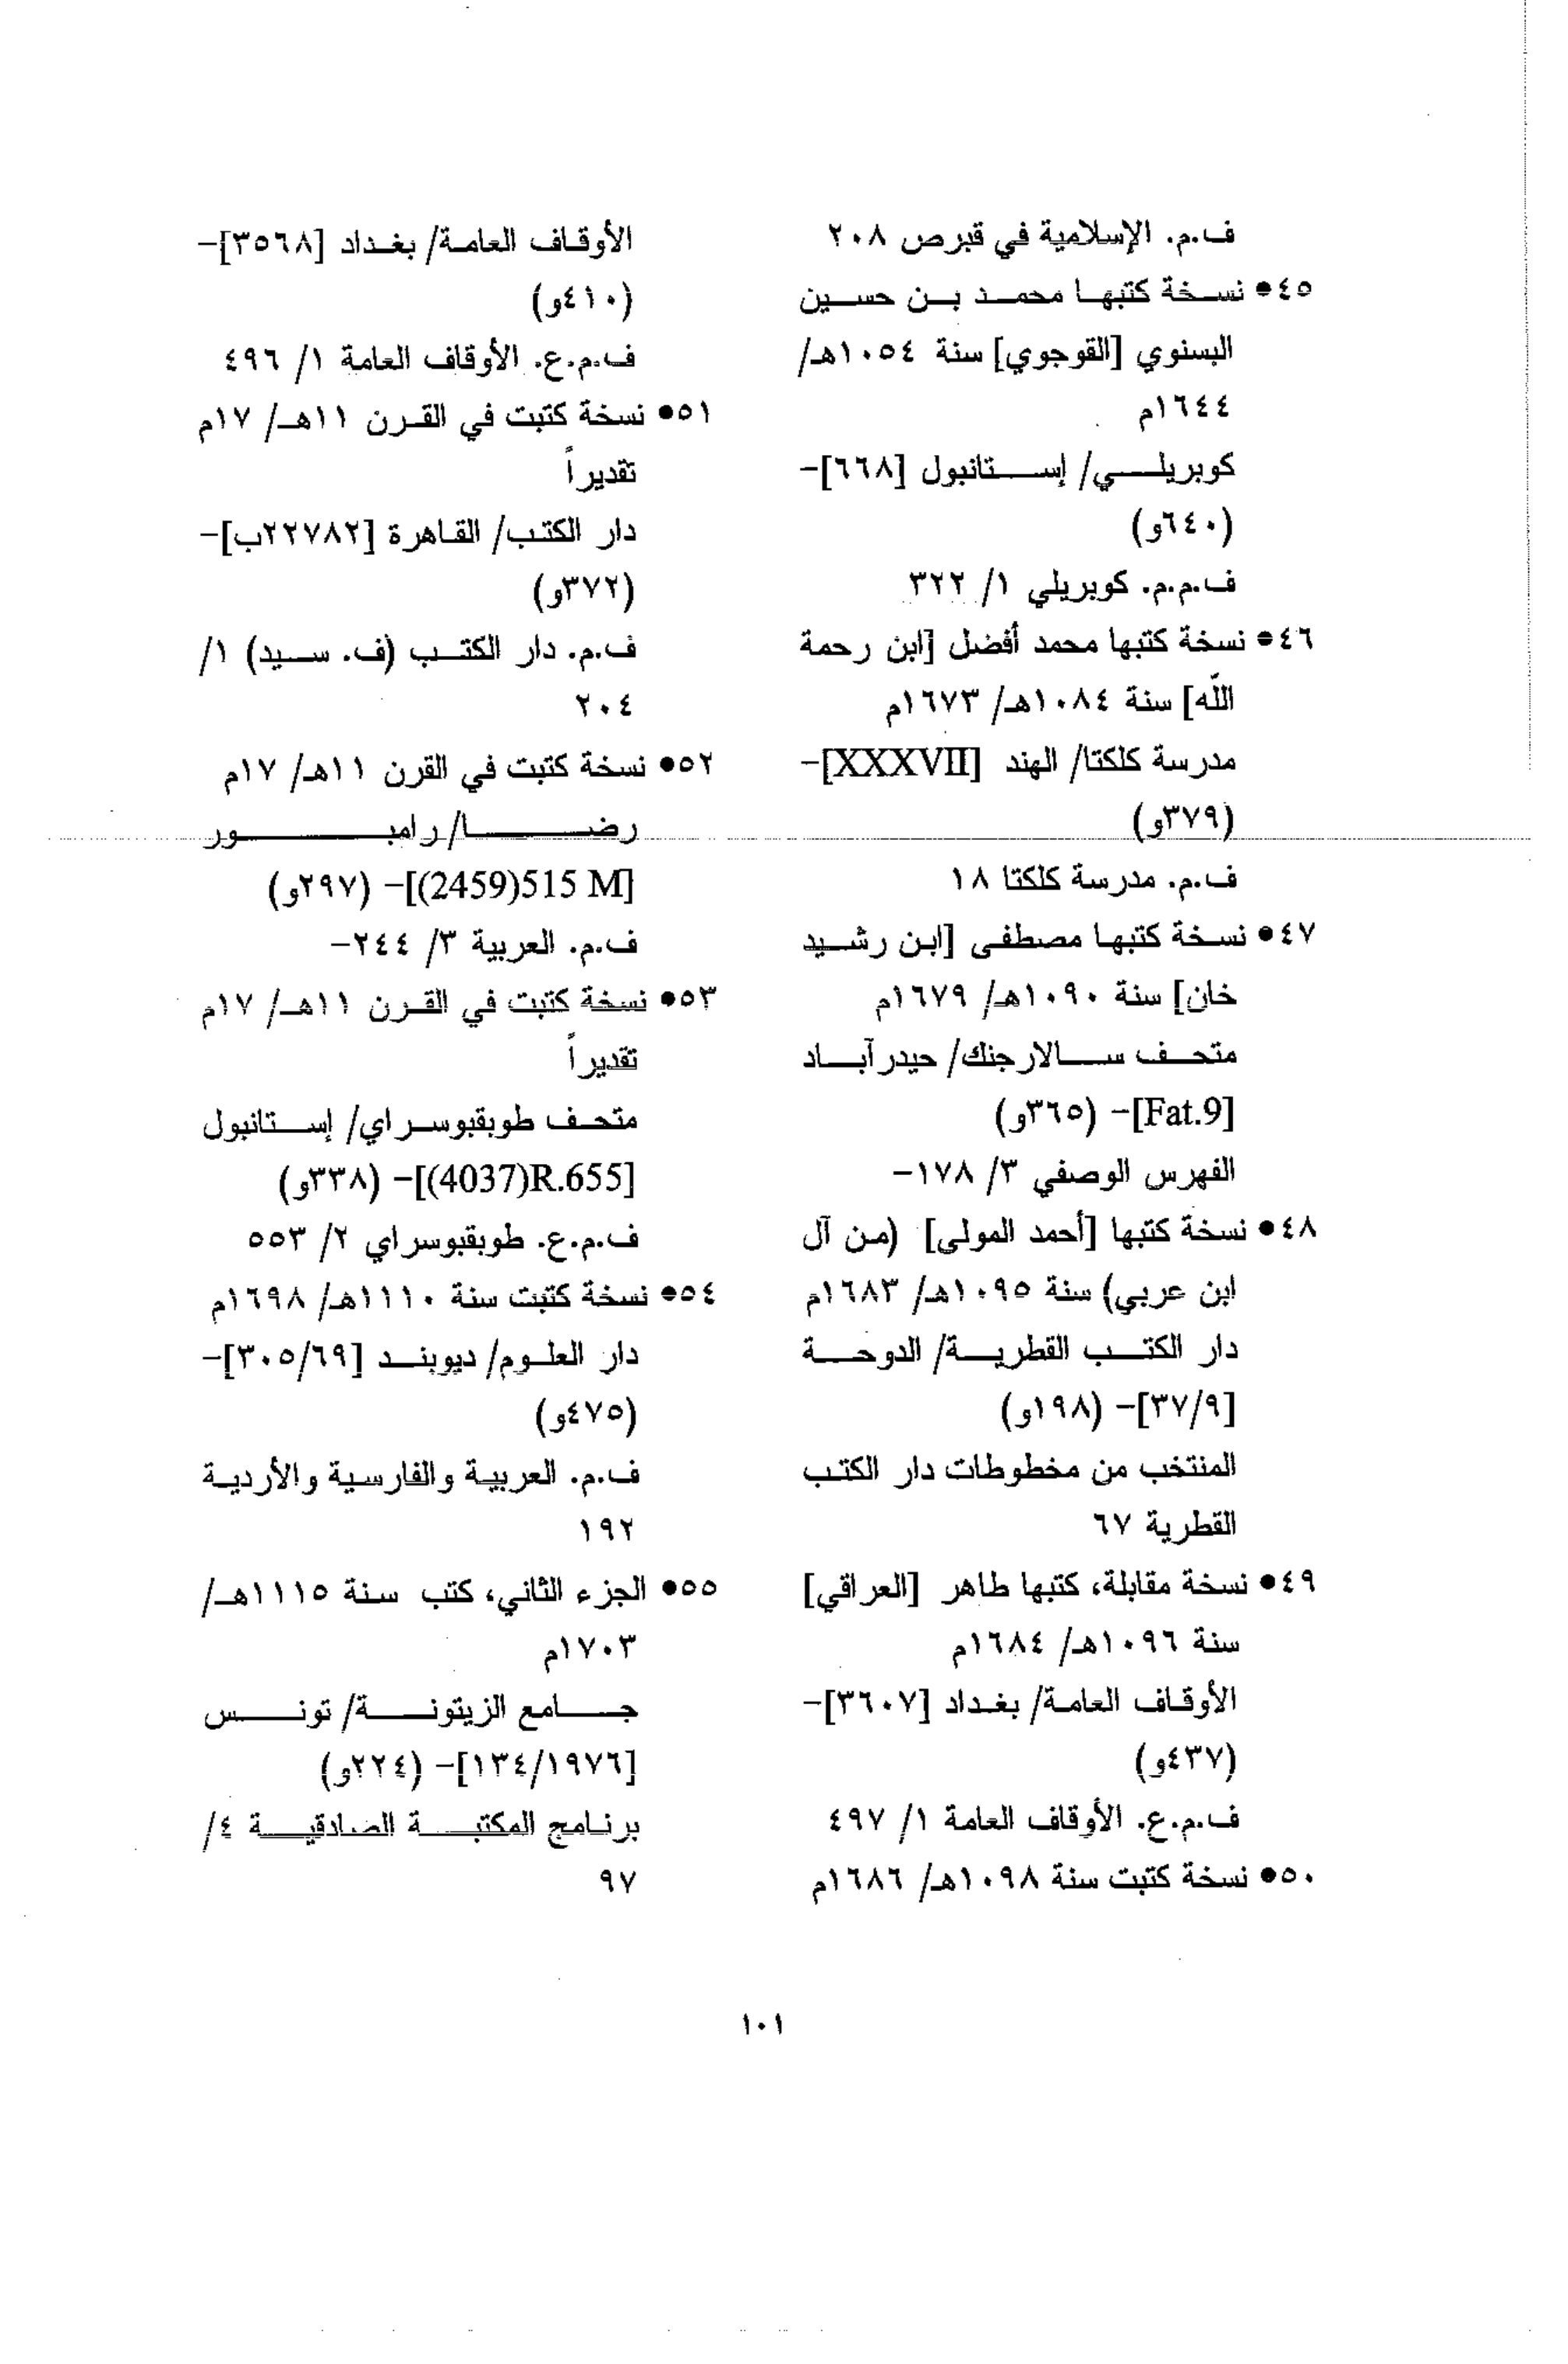 ف.م. الإسلامية في قبرص ٢٠٨
٤٥● نسخة كتبها محمد بن حسين
البسنوي [القوجوي] سنة ١٠٥٤هـ/
١٦٤٤م
كوبريلي/ إستانبول [٦٦٨]-
(٦٤٠و)
ف.م.م. كوبريلي ١/ ٣٢٢
٤٦● نسخة كتبها محمد أفضل [ابن رحمة
الله] سنة ١٠٨٤هـ/ ١٦٧٣م
مدرسة كلكتا/ الهند [XXXVII]-
(٣٧٩و)
ف.م. مدرسة كلكتا ١٨
٤٧● نسخة كتبها مصطفى [ابن رشيد
خان] سنة ١٠٩٠هـ/ ١٦٧٩م
متحف سالارجنك/ حيدرآباد
[Fat.9]- (٣٦٥و)
الفهرس الوصفي ٣/ ١٧٨-
٤٨● نسخة كتبها [أحمد المولى] (من آل
ابن عربي) سنة ١٠٩٥هـ/ ١٦٨٣م
دار الكتب القطرية/ الدوحة
[٣٧/٩]- (١٩٨و)
المنتخب من مخطوطات دار الكتب
القطرية ٦٧
٤٩● نسخة مقابلة، كتبها طاهر [العراقي]
سنة ١٠٩٦هـ/ ١٦٨٤م
الأوقاف العامة/ بغداد [٣٦٠٧]-
(٤٣٧و)
ف.م.ع. الأوقاف العامة ١/ ٤٩٧
٥٠● نسخة كتبت سنة ١٠٩٨هـ/ ١٦٨٦م
الأوقاف العامة/ بغداد [٣٥٦٨]-
(٤١٠و)
ف.م.ع. الأوقاف العامة ١/ ٤٩٦
٥١● نسخة كتبت في القرن ١١هـ/ ١٧م
تقديراً
دار الكتب/ القاهرة [٢٢٧٨٢ب]-
(٣٧٢و)
ف.م. دار الكتب (ف. سيد) ١/
٢٠٤
٥٢● نسخة كتبت في القرن ١١هـ/ ١٧م
رضا/ رامبور
[(2459)515 M]- (٢٩٧و)
ف.م. العربية ٣/ ٢٤٤-
٥٣● نسخة كتبت في القرن ١١هـ/ ١٧م
تقديراً
متحف طوبقبوسراي/ إستانبول
[(4037)R.655]- (٣٣٨و)
ف.م.ع. طوبقبوسراي ٢/ ٥٥٣
٥٤● نسخة كتبت سنة ١١١٠هـ/ ١٦٩٨م
دار العلوم/ ديوبند [٣٠٥/٦٩]-
(٤٧٥و)
ف.م. العربية والفارسية والأردية
١٩٢
٥٥● الجزء الثاني، كتب سنة ١١١٥هـ/
١٧٠٣م
جامع الزيتونة/ تونس
[١٣٤/١٩٧٦]- (٢٢٤و)
برنامج المكتبة الصادقية ٤/
٩٧
١٠١